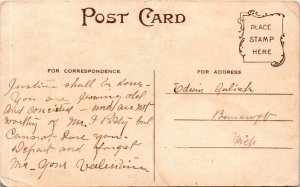 POST CARD
PLACE
STAMP
HERE
FOR CORRESPONDENCE.
FOR ADDRESS
Justice shall be done-
You are growing old
and conceited - and are not
worthy of me. I pity but
cannot love you-
Depart and forget
Me- Your Valentine
Edwin Gulick